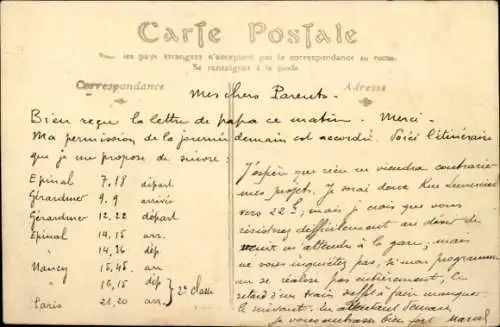 Carte Postale
Tous les pays étrangers n'acceptent pas la correspondance au recto.
Se renseigner à la poste
Correspondance
Adresse
Mes chers Parents.
Bien reçu la lettre de papa ce matin. Merci.
Ma permission de la journée demain est accordée. Voici l'itinéraire
que je me propose de suivre :
Epinal 7.18 départ
Gérardmer 9.9 arrivée
Gérardmer 12.22 départ
Epinal 14.15 arr
" 14.36 dép.
Nancy 15.45. arr
" 16,15 dép
Paris 21.20 arr.
2e Classe
J'espère que rien ne viendra contrarier
mes projets. Je serai donc
vers 22 h, mais je crois que vous
résisterez difficilement au désir de
venir m'attendre à la gare ; mais
ne vous inquiétez pas, si mon programme
ne se réalise pas entièrement, un
retard d'un train suffit à faire manquer
le suivant. En attendant demain,
je vous embrasse bien fort Marcel